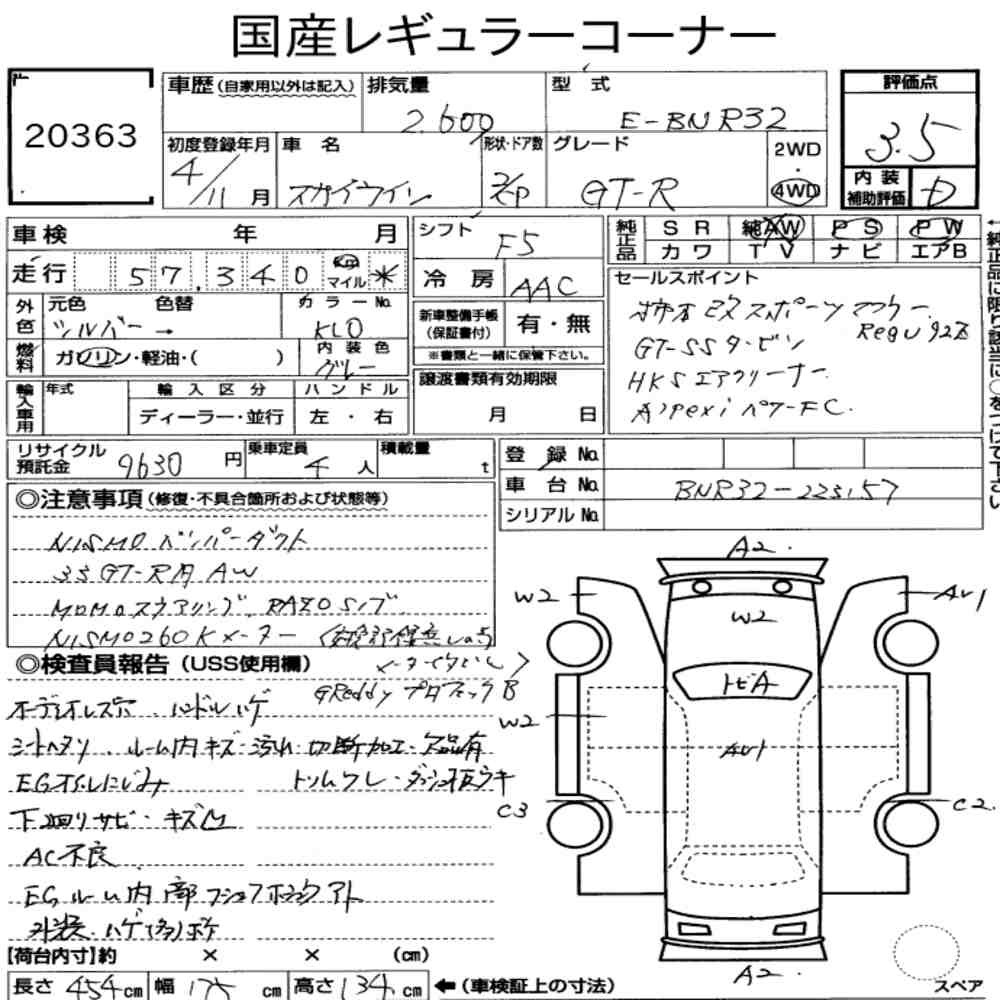 国産レギュラーコーナー
20363
車歴(自家用以外は記入) 排気量 2.600 型式 E-BNR32 評価点 3.5
初度登録年月 4/11月 車名 スカイライン 形状・ドア数 2/CP グレード GT-R 2WD・4WD 内装補助評価 D
車検 年 月 シフト F5 純正品 SR 純AW PS PW
カワ TV ナビ エアB
走行 57,340 Km マイル * 冷房 AAC セールスポイント
外色 元色 シルバー→ 色替 カラーNo. KL0 新車整備手帳(保証書付) 有・無
※書類と一緒に保管下さい。
柿本改スポーツマフラー Regu 92R
GT-SSタービン
HKSエアクリーナー
A'pexiパワーFC.
燃料 ガソリン・軽油・( ) 内装色 グレー
譲渡書類有効期限 月 日
輸入車用 年式 輸入区分 ディーラー・並行 ハンドル 左・右
リサイクル預託金 9630円 乗車定員 4人 積載量 t
登録No.
車台No. BNR32-223157
シリアルNo.
←純正品に限り該当に○をつけて下さい
◎注意事項(修復・不具合箇所および状態等)
NISMOバンパーダクト
33GT-R用AW
MOMOステアリング、RAZOシフノブ
NISMO260Kメーター
◎検査員報告(USS使用欄)
GReddy プロフェックB
オーディオレス穴、ハンドルハゲ
シートヘタリ、ルーム内キズ・汚れ・切断加工・欠品有
EGオイルにじみ トリムワレ・ダッシュ板ウキ
下廻りサビ・キズ凹
AC不良
EGルーム内部
外装ハゲ
A2.
W2 W2 AW1
トビA
W2 AW1
C3 C2.
A2
スペア
【荷台内寸】約 × × (cm)
長さ 454cm 幅 175cm 高さ 134cm ←(車検証上の寸法)